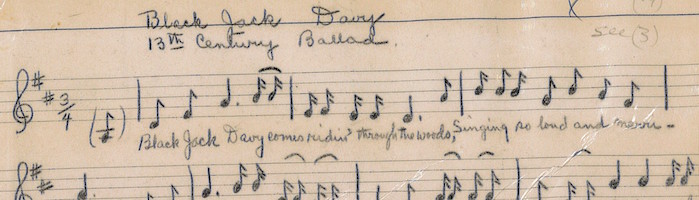 Black Jack Davy
13th Century Ballad.
see (3)
3
4
Black Jack Davy comes ridin' through the woods, Singing so loud and merri-